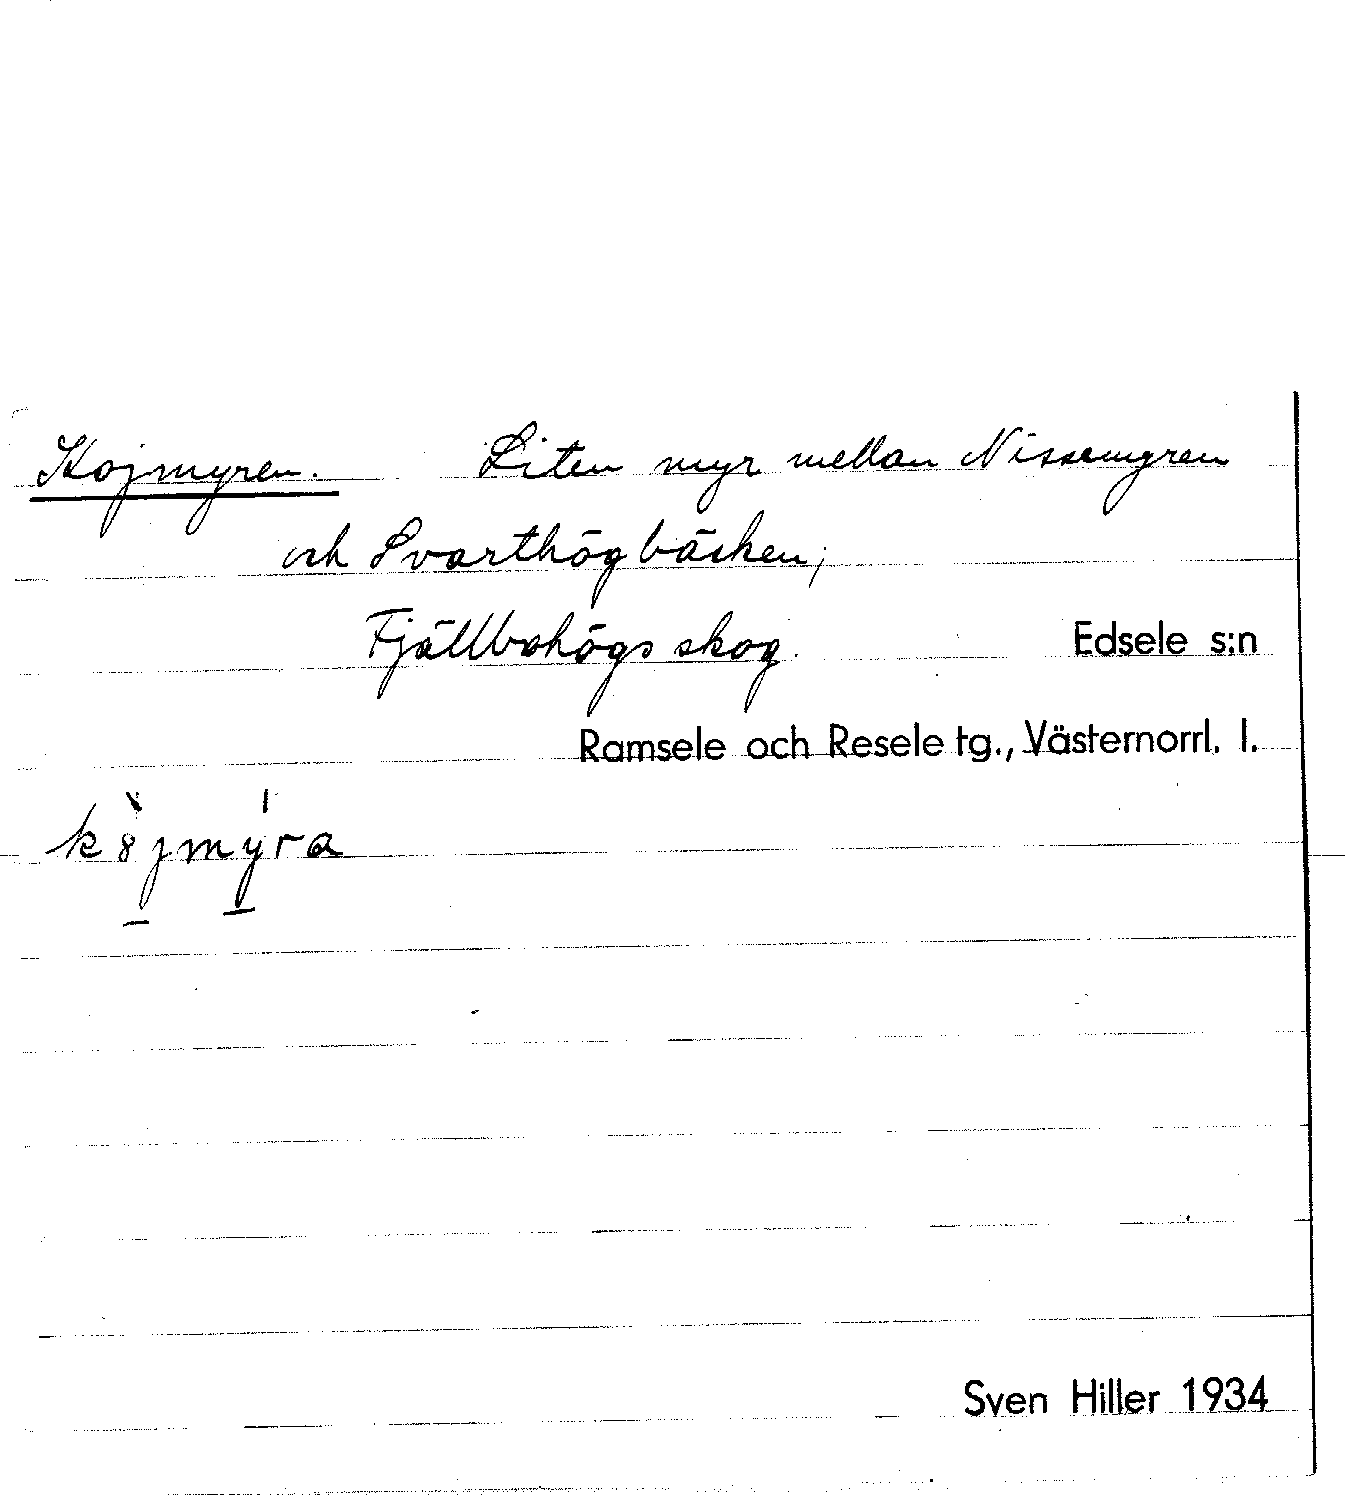 Kojmyren. Liten myr mellan Nissemyren
och Svarthögbäcken;
Fjällbohögs skog. Edsele s:n
Ramsele och Resele tg., Västernorrl. l.
k8jmyra
Sven Hiller 1934